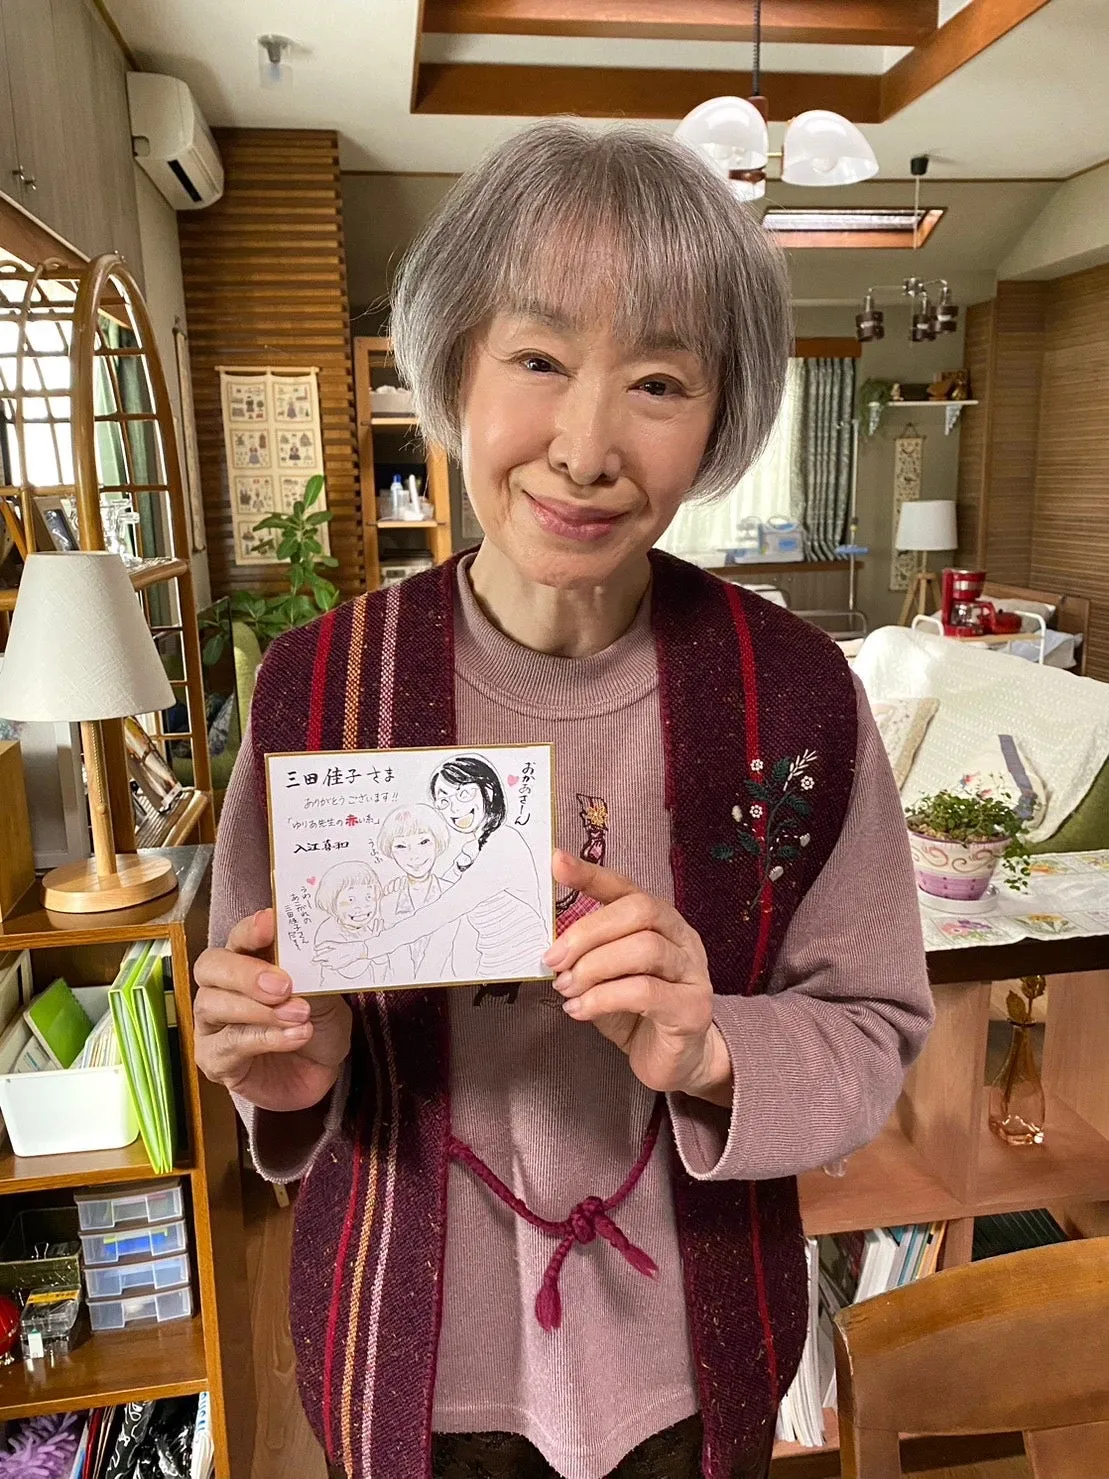 三田佳子さま
ありがとうございます!!
「ゆりあ先生の赤い糸」
入江喜和
おかあさーん
うふふ
うわーい
あこがれの
三田佳子さん
だぁ〜